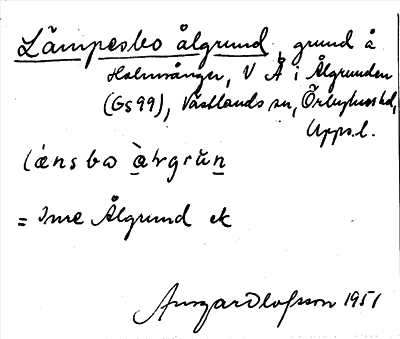 Lämpesbo ålgrund, grund å
Holmånger, V Å i Ålgrunden
(Gs 99), Västlands sn, Örbyhus hd,
Upps.l.
lánsbo àlvgrŭn
= Ålgrund ek
Ansgar Olofsson 1951